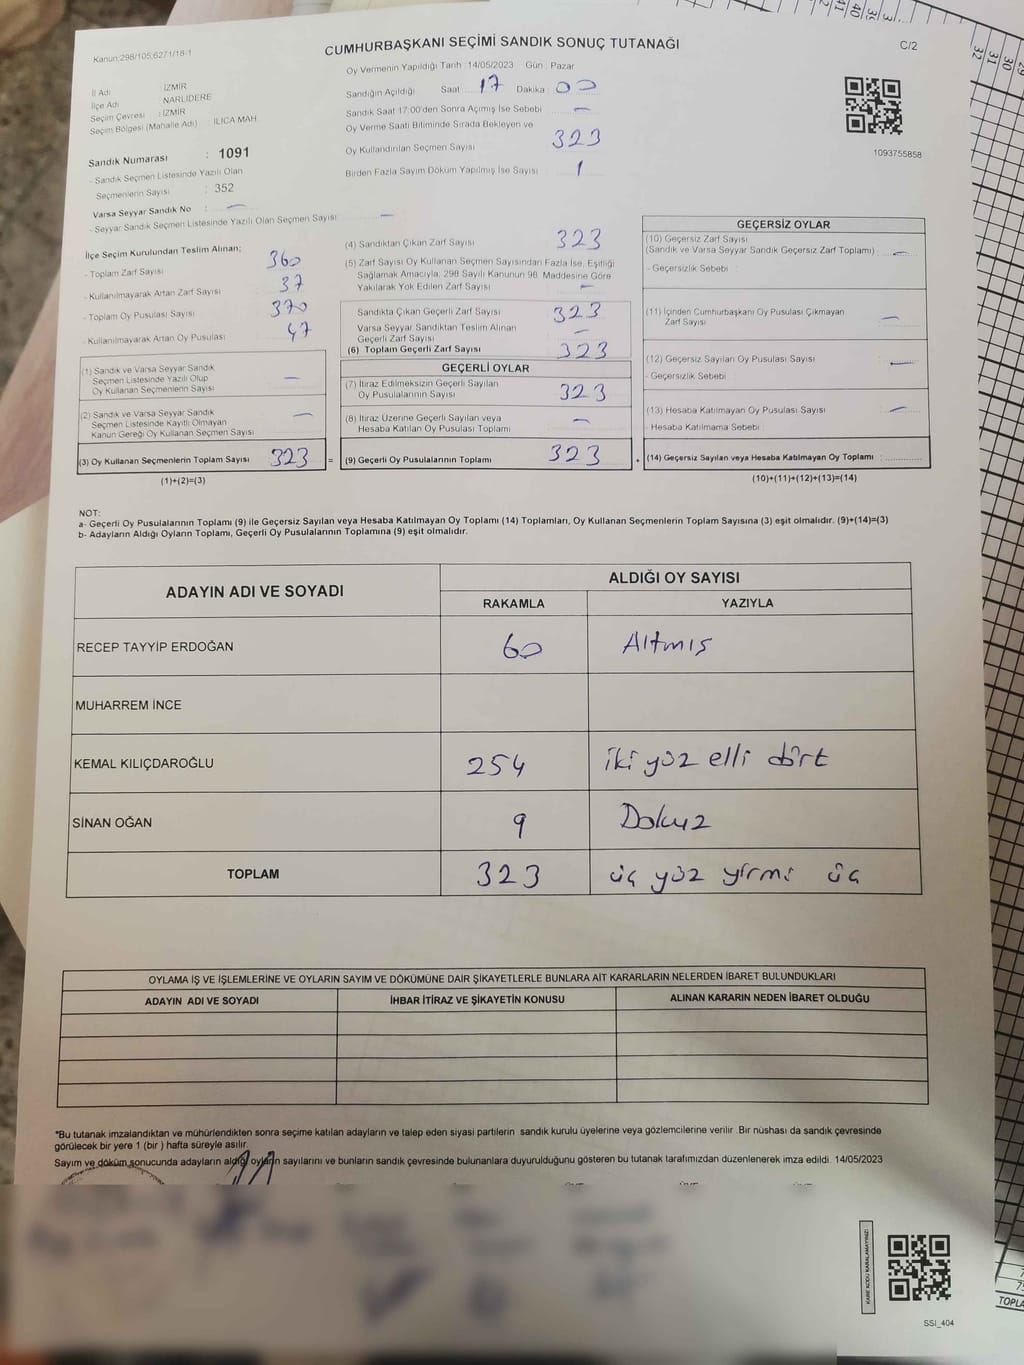 Kanun:298/105,6271/18-1
CUMHURBAŞKANI SEÇİMİ SANDIK SONUÇ TUTANAĞI
C/2
İl Adı : İZMİR
İlçe Adı NARLIDERE
Seçim Çevresi : İZMİR
Seçim Bölgesi (Mahalle Adı) ILICA MAH.
Sandık Numarası : 1091
- Sandık Seçmen Listesinde Yazılı Olan
Seçmenlerin Sayısı : 352
Varsa Seyyar Sandık No : —
- Seyyar Sandık Seçmen Listesinde Yazılı Olan Seçmen Sayısı —
Oy Vermenin Yapıldığı Tarih :14/05/2023 Gün : Pazar
Sandığın Açıldığı Saat 17 Dakika 00
Sandık Saat 17:00'den Sonra Açılmış İse Sebebi —
Oy Verme Saati Bitiminde Sırada Bekleyen ve
Oy Kullandırılan Seçmen Sayısı 323
Birden Fazla Sayım Döküm Yapılmış İse Sayısı 1
1093755858
İlçe Seçim Kurulundan Teslim Alınan;
- Toplam Zarf Sayısı 360
- Kullanılmayarak Artan Zarf Sayısı 37
- Toplam Oy Pusulası Sayısı 370
- Kullanılmayarak Artan Oy Pusulası 47
(1) Sandık ve Varsa Seyyar Sandık
Seçmen Listesinde Yazılı Olup
Oy Kullanan Seçmenlerin Sayısı —
(2) Sandık ve Varsa Seyyar Sandık
Seçmen Listesinde Kayıtlı Olmayan
Kanun Gereği Oy Kullanan Seçmen Sayısı —
(3) Oy Kullanan Seçmenlerin Toplam Sayısı 323 =
(1)+(2)=(3)
(4) Sandıktan Çıkan Zarf Sayısı 323
(5) Zarf Sayısı Oy Kullanan Seçmen Sayısından Fazla İse, Eşitliği
Sağlamak Amacıyla; 298 Sayılı Kanunun 98. Maddesine Göre
Yakılarak Yok Edilen Zarf Sayısı —
Sandıkta Çıkan Geçerli Zarf Sayısı 323
Varsa Seyyar Sandıktan Teslim Alınan
Geçerli Zarf Sayısı —
(6) Toplam Geçerli Zarf Sayısı 323
GEÇERLİ OYLAR
(7) İtiraz Edilmeksizin Geçerli Sayılan
Oy Pusulalarının Sayısı 323
(8) İtiraz Üzerine Geçerli Sayılan veya
Hesaba Katılan Oy Pusulası Toplamı —
(9) Geçerli Oy Pusulalarının Toplamı 323
GEÇERSİZ OYLAR
(10) Geçersiz Zarf Sayısı
(Sandık ve Varsa Seyyar Sandık Geçersiz Zarf Toplamı) : —
- Geçersizlik Sebebi :
(11) İçinden Cumhurbaşkanı Oy Pusulası Çıkmayan
Zarf Sayısı —
(12) Geçersiz Sayılan Oy Pusulası Sayısı —
- Geçersizlik Sebebi :
(13) Hesaba Katılmayan Oy Pusulası Sayısı —
- Hesaba Katılmama Sebebi :
(14) Geçersiz Sayılan veya Hesaba Katılmayan Oy Toplamı :
(10)+(11)+(12)+(13)=(14)
NOT:
a- Geçerli Oy Pusulalarının Toplamı (9) ile Geçersiz Sayılan veya Hesaba Katılmayan Oy Toplamı (14) Toplamları, Oy Kullanan Seçmenlerin Toplam Sayısına (3) eşit olmalıdır. (9)+(14)=(3)
b- Adayların Aldığı Oyların Toplamı, Geçerli Oy Pusulalarının Toplamına (9) eşit olmalıdır.
ADAYIN ADI VE SOYADI
ALDIĞI OY SAYISI
RAKAMLA YAZIYLA
RECEP TAYYİP ERDOĞAN 60 Altmış
MUHARREM İNCE
KEMAL KILIÇDAROĞLU 254 iki yüz elli dört
SİNAN OĞAN 9 Dokuz
TOPLAM 323 üç yüz yirmi üç
OYLAMA İŞ VE İŞLEMLERİNE VE OYLARIN SAYIM VE DÖKÜMÜNE DAİR ŞİKAYETLERLE BUNLARA AİT KARARLARIN NELERDEN İBARET BULUNDUKLARI
ADAYIN ADI VE SOYADI İHBAR İTİRAZ VE ŞİKAYETİN KONUSU ALINAN KARARIN NEDEN İBARET OLDUĞU
*Bu tutanak imzalandıktan ve mühürlendikten sonra seçime katılan adayların ve talep eden siyasi partilerin sandık kurulu üyelerine veya gözlemcilerine verilir .Bir nüshası da sandık çevresinde
görülecek bir yere 1 (bir ) hafta süreyle asılır.
Sayım ve döküm sonucunda adayların aldığı oyların sayılarını ve bunların sandık çevresinde bulunanlara duyurulduğunu gösteren bu tutanak tarafımızdan düzenlenerek imza edildi. 14/05/2023
KARE KODU KARALAMAYINIZ!
SSI_404